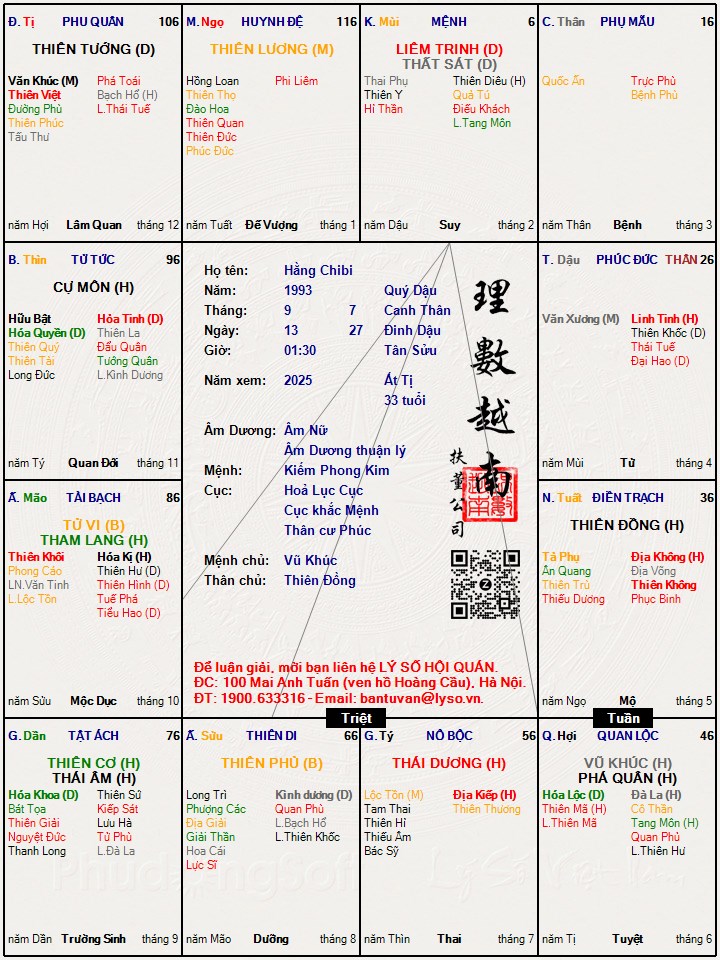 Đ. Tị PHU QUÂN 106
THIÊN TƯỚNG (D)
Văn Khúc (M) Phá Toái
Thiên Việt Bạch Hổ (H)
Đường Phù L.Thái Tuế
Thiên Phúc
Tấu Thư
năm Hợi Lâm Quan tháng 12
M. Ngọ HUYNH ĐỆ 116
THIÊN LƯƠNG (M)
Hồng Loan Phi Liêm
Thiên Thọ
Đào Hoa
Thiên Quan
Thiên Đức
Phúc Đức
năm Tuất Đế Vượng tháng 1
K. Mùi MỆNH 6
LIÊM TRINH (D)
THẤT SÁT (D)
Thai Phụ Thiên Diêu (H)
Thiên Y Quả Tú
Hỉ Thần Điếu Khách
L.Tang Môn
năm Dậu Suy tháng 2
C. Thân PHỤ MẪU 16
Quốc Ấn Trực Phù
Bệnh Phù
năm Thân Bệnh tháng 3
B. Thìn TỬ TỨC 96
CỰ MÔN (H)
Hữu Bật Hỏa Tinh (D)
Hóa Quyền (D) Thiên La
Thiên Quý Đẩu Quân
Thiên Tài Tướng Quân
Long Đức L.Kình Dương
năm Tý Quan Đới tháng 11
Họ tên: Hằng Chibi
Năm: 1993 Quý Dậu
Tháng: 9 7 Canh Thân
Ngày: 13 27 Đinh Dậu
Giờ: 01:30 Tân Sửu
Năm xem: 2025 Ất Tị
33 tuổi
Âm Dương: Âm Nữ
Âm Dương thuận lý
Mệnh: Kiếm Phong Kim
Cục: Hoả Lục Cục
Cục khắc Mệnh
Thân cư Phúc
Mệnh chủ: Vũ Khúc
Thân chủ: Thiên Đồng
理數越南
扶董公司
Để luận giải, mời bạn liên hệ LÝ SỐ HỘI QUÁN.
ĐC: 100 Mai Anh Tuấn (ven hồ Hoàng Cầu), Hà Nội.
ĐT: 1900.633316 - Email: bantuvan@lyso.vn.
T. Dậu PHÚC ĐỨC THÂN 26
Văn Xương (M) Linh Tinh (H)
Thiên Khốc (D)
Thái Tuế
Đại Hao (D)
năm Mùi Tử tháng 4
Ấ. Mão TÀI BẠCH 86
TỬ VI (B)
THAM LANG (H)
Thiên Khôi Hóa Kị (H)
Phong Cáo Thiên Hư (D)
LN.Văn Tinh Thiên Hình (D)
L.Lộc Tồn Tuế Phá
Tiểu Hao (D)
năm Sửu Mộc Dục tháng 10
N. Tuất ĐIỀN TRẠCH 36
THIÊN ĐỒNG (H)
Tả Phụ Địa Không (H)
Ân Quang Địa Võng
Thiên Trù Thiên Không
Thiếu Dương Phục Binh
năm Ngọ Mộ tháng 5
Triệt
Tuần
G. Dần TẬT ÁCH 76
THIÊN CƠ (H)
THÁI ÂM (H)
Hóa Khoa (D) Thiên Sứ
Bát Tọa Kiếp Sát
Thiên Giải Lưu Hà
Nguyệt Đức Tử Phù
Thanh Long L.Đà La
năm Dần Trường Sinh tháng 9
Ấ. Sửu THIÊN DI 66
THIÊN PHỦ (B)
Long Trì Kình dương (D)
Phượng Các Quan Phù
Địa Giải L.Bạch Hổ
Giải Thần L.Thiên Khốc
Hoa Cái
Lực Sĩ
năm Mão Dưỡng tháng 8
G. Tý NÔ BỘC 56
THÁI DƯƠNG (H)
Lộc Tồn (M) Địa Kiếp (H)
Tam Thai Thiên Thương
Thiên Hỉ
Thiếu Âm
Bác Sỹ
năm Thìn Thai tháng 7
Q. Hợi QUAN LỘC 46
VŨ KHÚC (H)
PHÁ QUÂN (H)
Hóa Lộc (D) Đà La (H)
Thiên Mã (H) Cô Thần
L.Thiên Mã Tang Môn (H)
Quan Phủ
L.Thiên Hư
năm Tị Tuyệt tháng 6